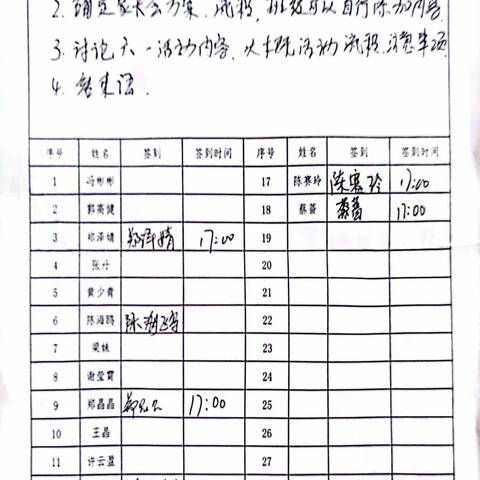 2. 确定家长会方案、流程, 班级可以自行添加内容
3. 讨论六一活动内容, 以主题活动流程、注意事项
4. 结束语.
序号 姓名 签到 签到时间 序号 姓名 签到 签到时间
1 冯彬彬 17 陈赛玲 陈赛玲 17:00
2 郭高健 18 蔡蔷 蔡蔷 17:00
3 郑泽婧 郑泽婧 17:00 19
4 张丹 20
5 黄少青 21
6 陈海鸥 22
7 梁妹 23
8 谢莹霄 24
9 郑晶晶 郑晶晶 17:00 25
10 王晶 26
11 许云盈 27